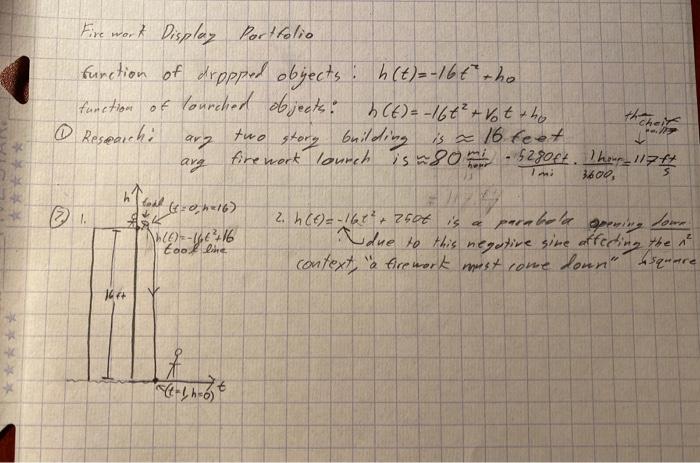 Firework Display Portfolio
function of dropped objects: h(t)=-16t²+h₀
function of launched objects: h(t)=-16t²+V₀t+h₀
① Research: avg two story building is ≈ 16 feet
avg firework launch is ≈80 mi/hour · 5280ft/1mi · 1hour/3600s = 117 ft/s
the
② 1. h
tool (t=0,h=16)
h(t)=-16t²+16
tool line
16 ft
(t=1,h=0) t
2. h(t)=-16t²+250t is a parabola opening down
due to this negative sine affecting the
context, "a firework must come down" square